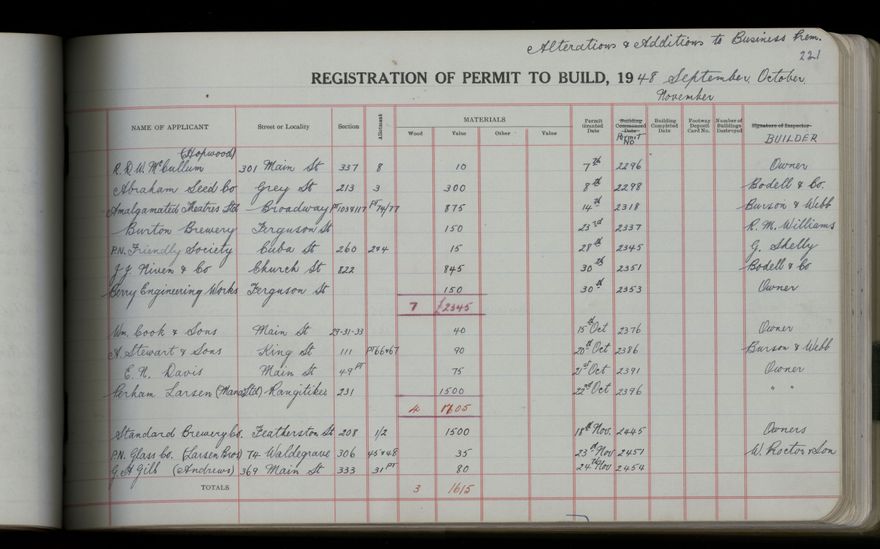 Alterations & Additions to Business Prem.
221
REGISTRATION OF PERMIT TO BUILD, 1948 September, October,
November
NAME OF APPLICANT Street or Locality Section Allotment MATERIALS Wood Value Other Value Permit Granted Date Building Commenced Date Permit No Building Completed Date Footway Deposit Card No. Number of Buildings Destroyed Signature of Inspector BUILDER
(Hopwood)
R. D. W. McCullum 301 Main St 337 8 10 7th 2296 Owner
Abraham Seed Co Grey St 213 3 300 8th 2298 Bodell & Co.
Amalgamated Theatres Ltd Broadway PT 103&117 PT 74/77 875 14th 2318 Burson & Webb
Burton Brewery Ferguson St 150 23rd 2337 R. M. Williams
P.N. Friendly Society Cuba St 260 2&4 15 28th 2345 G. Shelly
J. J. Niven & Co Church St 822 845 30th 2351 Bodell & Co
Berry Engineering Works Ferguson St 150 30th 2353 Owner
7 £2345
Wm. Cook & Sons Main St 29-31-33 40 15th Oct 2376 Owner
A. Stewart & Sons King St 111 PT 66&67 90 20th Oct 2386 Burson & Webb
E. N. Davis Main St 49 PT 75 21st Oct 2391 Owner
Perham Larsen (Mana Ltd) Rangitikei 231 1500 22nd Oct 2396 " "
4 1705
Standard Brewery Co. Featherston St 208 1/2 1500 18th Nov. 2445 Owners
P.N. Glass Co. (Larsen Bros) 74 Waldegrave 306 45&48 35 23rd Nov 2451 W. Rector & Son
G. H. Gibb (Andrews) 369 Main St 333 31 PT 80 24th Nov 2454
TOTALS 3 1615